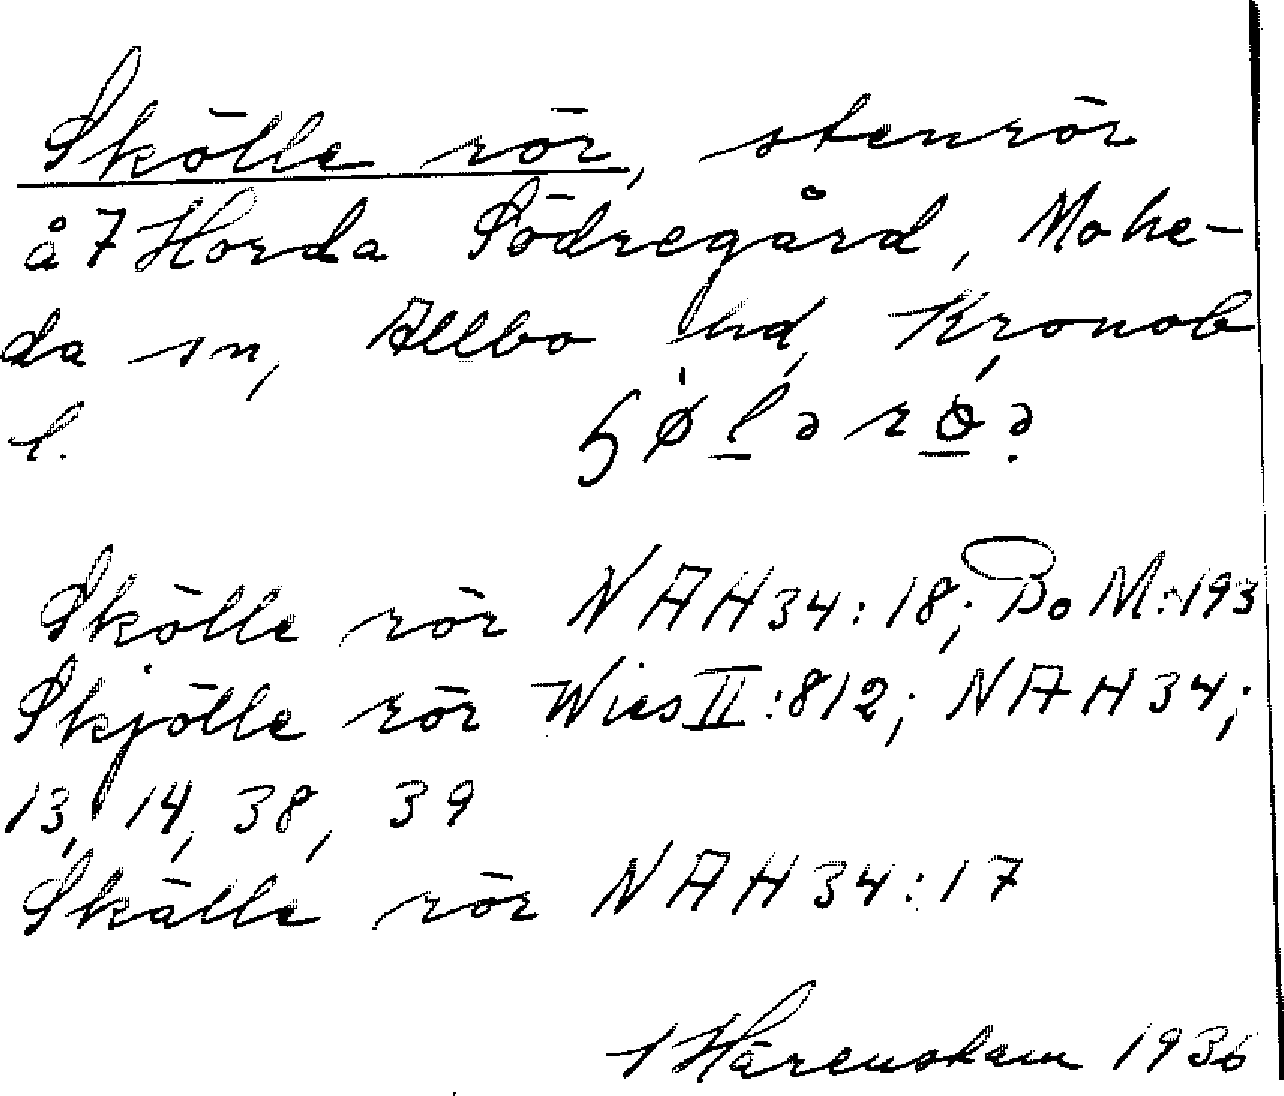 Skölle rör, stenrör
å 7 Horda Södregård, Mohe-
da sn, Allbo hd, Kronob
l.
Skölle rör NAH34:18; DoM:193
Skjölle rör Wies II:812; NAH34;
13, 14, 38, 39
Skälle rör NAH34:17
1936